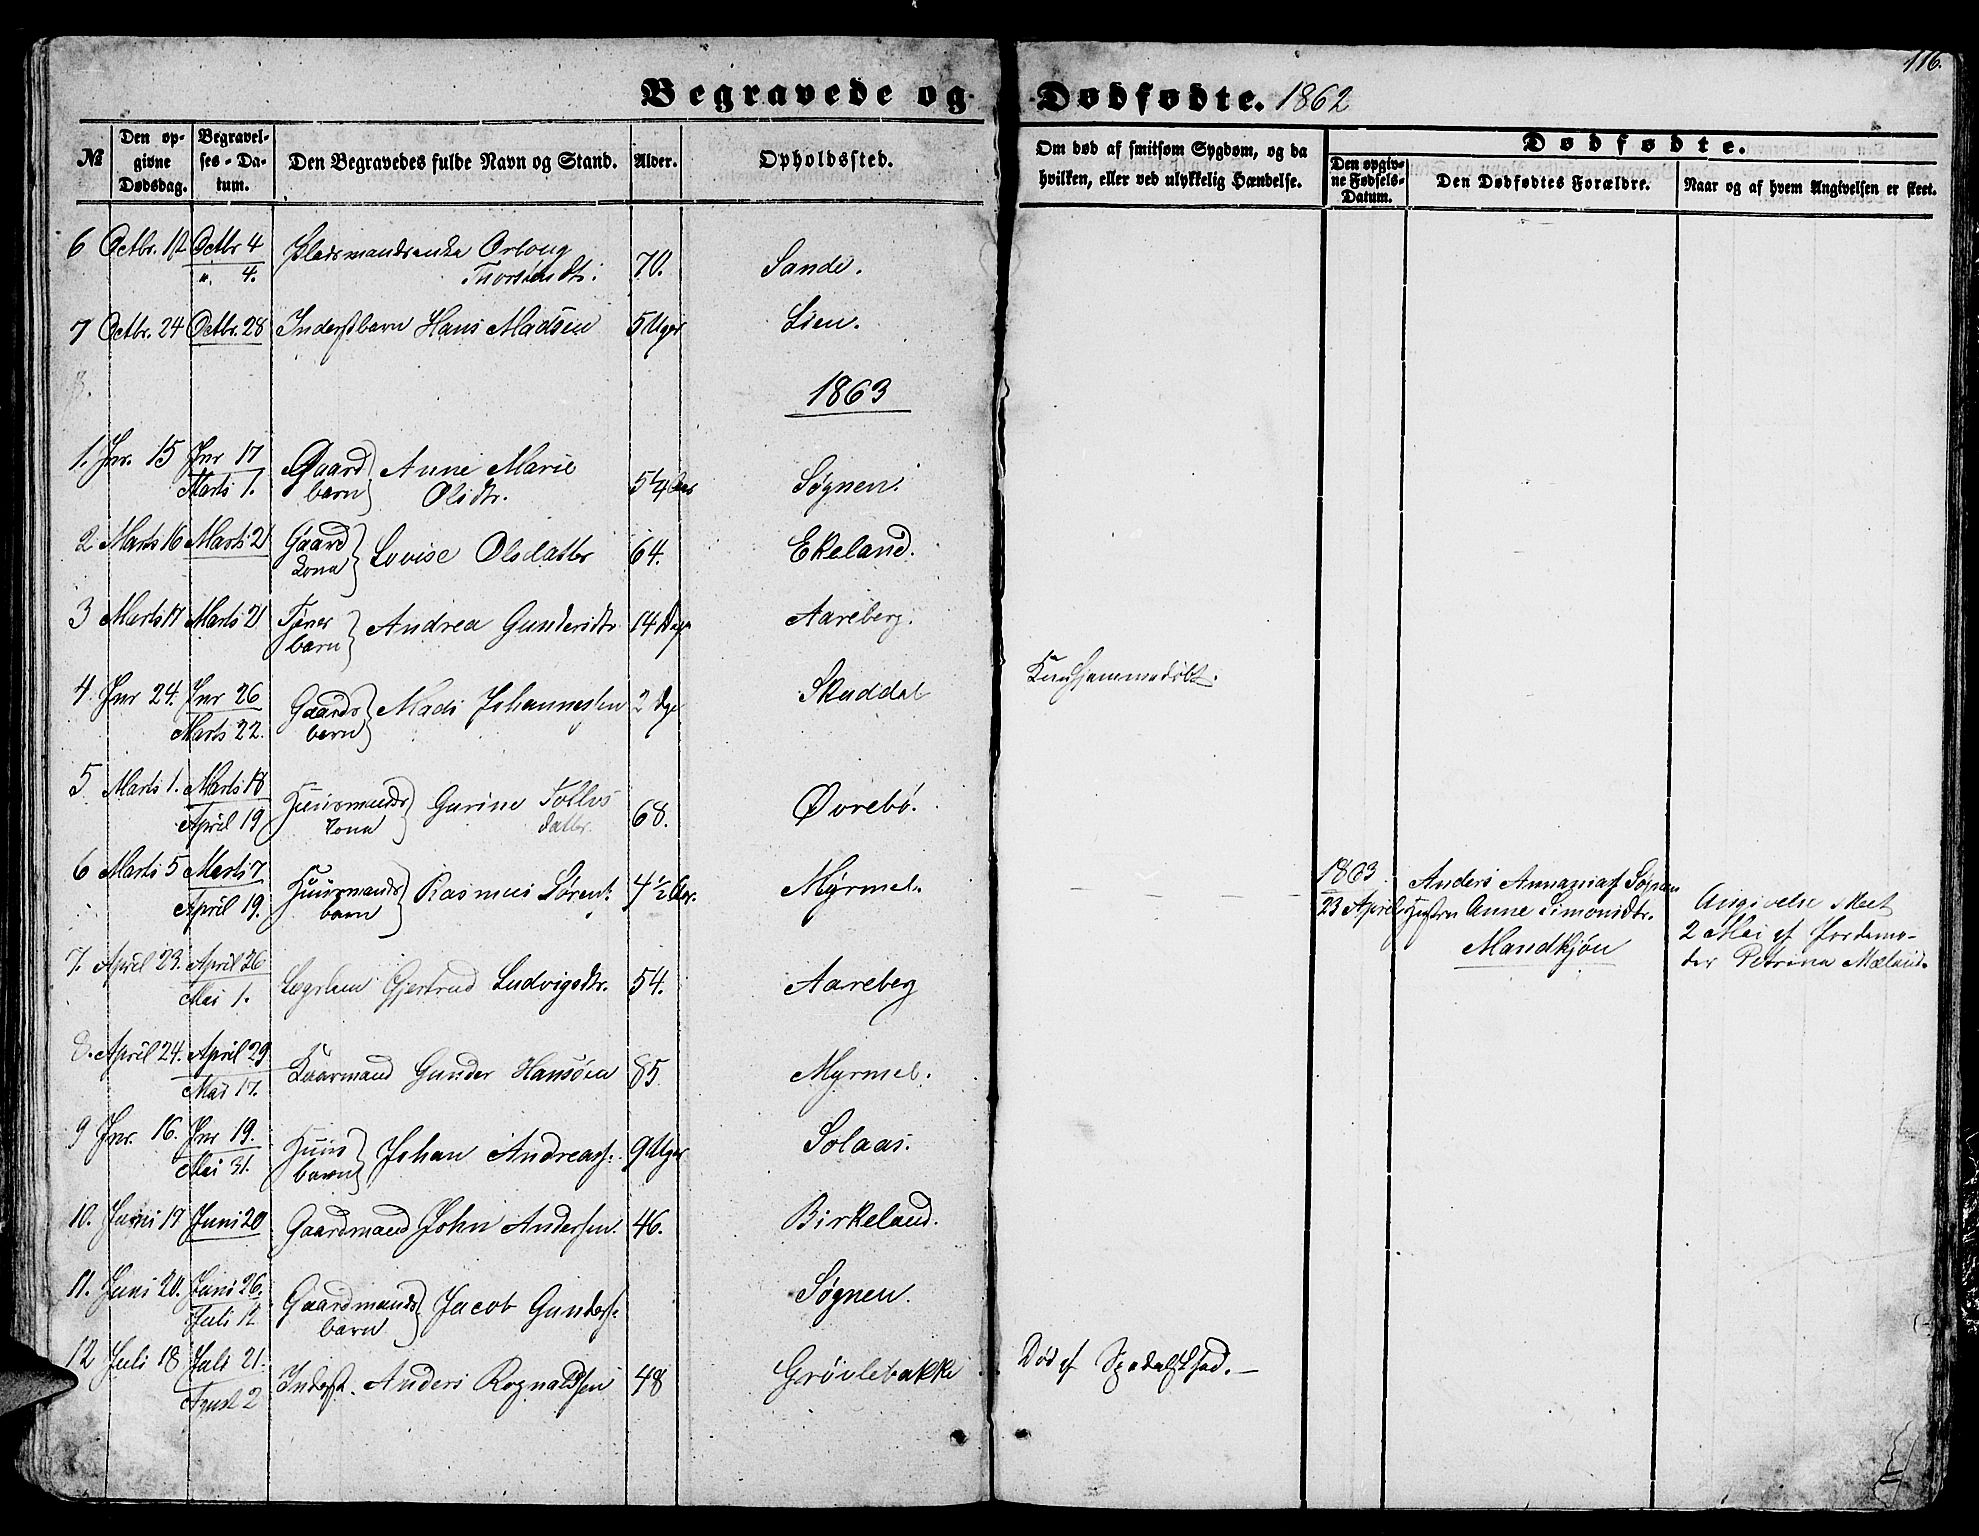 116.
Begravede og Dødfødte. 1862
№
Den opgivne Dødsdag.
Begravelses-Datum.
Den Begravedes fulde Navn og Stand.
Alder.
Opholdssted.
Om død af smitsom Sygdom, og da hvilken, eller ved ulykkelig Hændelse.
Dødfødte.
Den opgivne Fødsels-Datum.
Den Dødfødtes Forældre.
Naar og af hvem Angivelsen er skeet.
6 Octbr. 12 Octbr 4 70. Sande.
" 4.
7 Octbr. 24 Octbr. 28 Inderstbarn Hans Madsen 5 Uger Lien.
1863
1. Jnr. 15 Jnr 17 Gaard Anne Marie 5 1/4 Aar Søgnen.
Marts 1. barn Olsdtr.
2 Marts 16 Marts 21 Gaard Lovise Olsdattr 64. Ekeland.
kona
3 Marts 17 Marts 21 Tjener Andrea Gundersdtr 14 Dage Aareberg.
barn
4. Jnr 24. Jnr 26 Gaards Mads Johannessen 2 Dge Skuddal
Marts 22. barn
Kun hjemmedøbt.
5 Marts 1. Marts 18 Huusmands Gurine 68. Øvrebø.
April 19 kona dattr.
6 Marts 5 Marts 7 Huusmands Rasmus Sørens. 4 1/2 Aar. Myrmel.
April 19. barn
1863 Anders Annanias. Søgnen
23 April Hustru Anne Simonsdtr.
Mandkjøn
Angivelse skeet
2 Mai af Jordemo-
der Petrina Mæland.
7. April 23. April 26 Lægslem Gjertrud Ludvigsdtr. 54. Aareberg
Mai 1.
8. April 24. April 29 Kaarmand Gunder Hansøen 85 Myrmel.
Mai 17.
9 Jnr. 16. Jnr 19. Huus Johan Andreas. 9 Uger Solaas.
Mai 31. barn
10. Juni 17 Juni 20 Gaardmand John Andersen. 46. Birkeland.
11. Juni 20. Juni 26. Gaardmands Jacob Gunders. Søgnen.
Juli 12 barn
12 Juli 18 Juli 21. Inderst. Anders Rognaldsen 48 Grøvlebakke
Agust 2
Død af Spedalskhed.